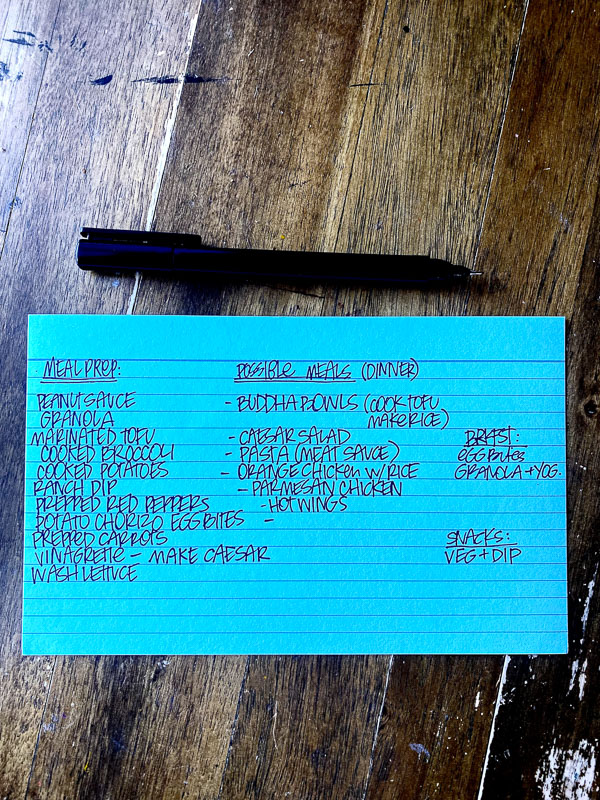 MEAL PREP:
PEANUT SAUCE
GRANOLA
MARINATED TOFU
COOKED BROCCOLI
COOKED POTATOES
RANCH DIP
PREPPED RED PEPPERS
POTATO CHORIZO EGG BITES
PREPPED CARROTS
VINAGRETTE - MAKE CAESAR
WASH LETTUCE
POSSIBLE MEALS (DINNER)
- BUDDHA BOWLS (COOK TOFU
MAKE RICE)
- CAESAR SALAD
- PASTA (MEAT SAUCE)
- ORANGE CHICKEN W/ RICE
- PARMESAN CHICKEN
- HOT WINGS
-
BRKFST:
EGG BITES
GRANOLA + YOG.
SNACKS:
VEG + DIP